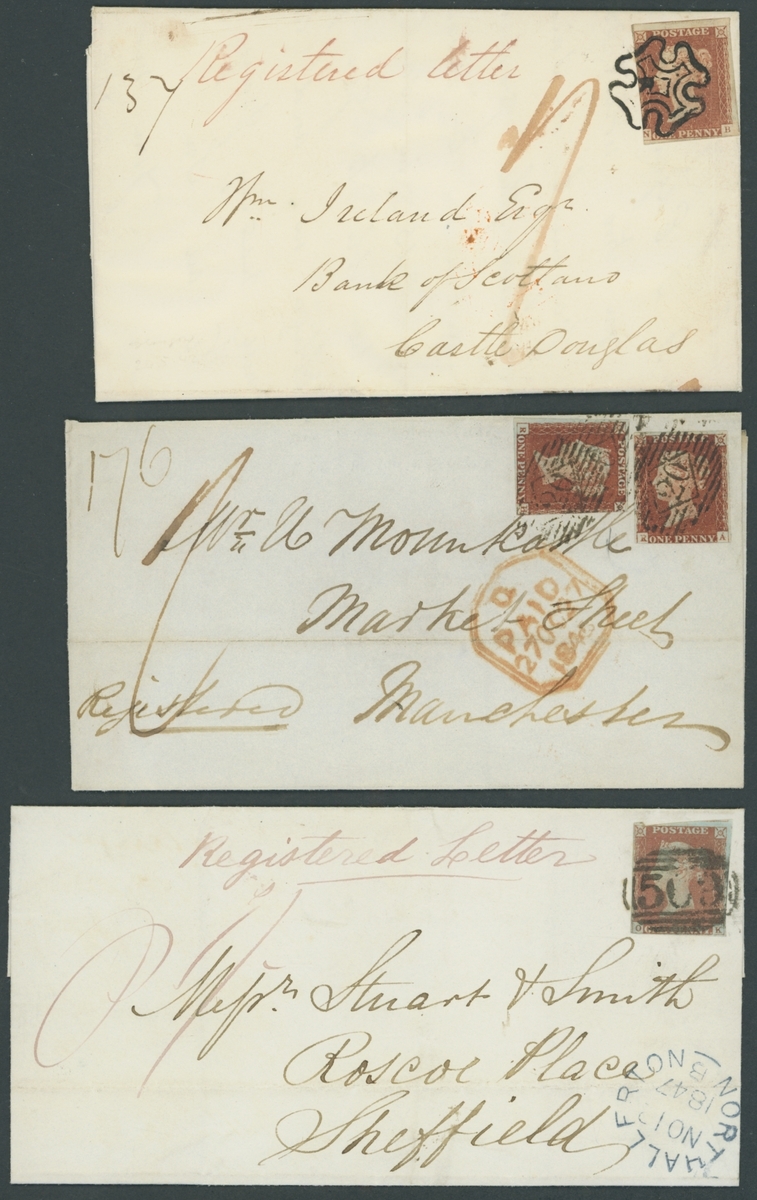 137
Registered Letter
POSTAGE
ONE PENNY
S B
1/
Wm. Ireland Esqr.
Bank of Scotland
Castle Douglas
176
POSTAGE
ONE PENNY
R
ONE PENNY
A
1/
Market Street
Registered Manchester
Q
PAID
27 OC 27
184
Registered Letter
POSTAGE
O K
1/
Messrs Stuart & Smith
Roscoe Place
Sheffield
1847